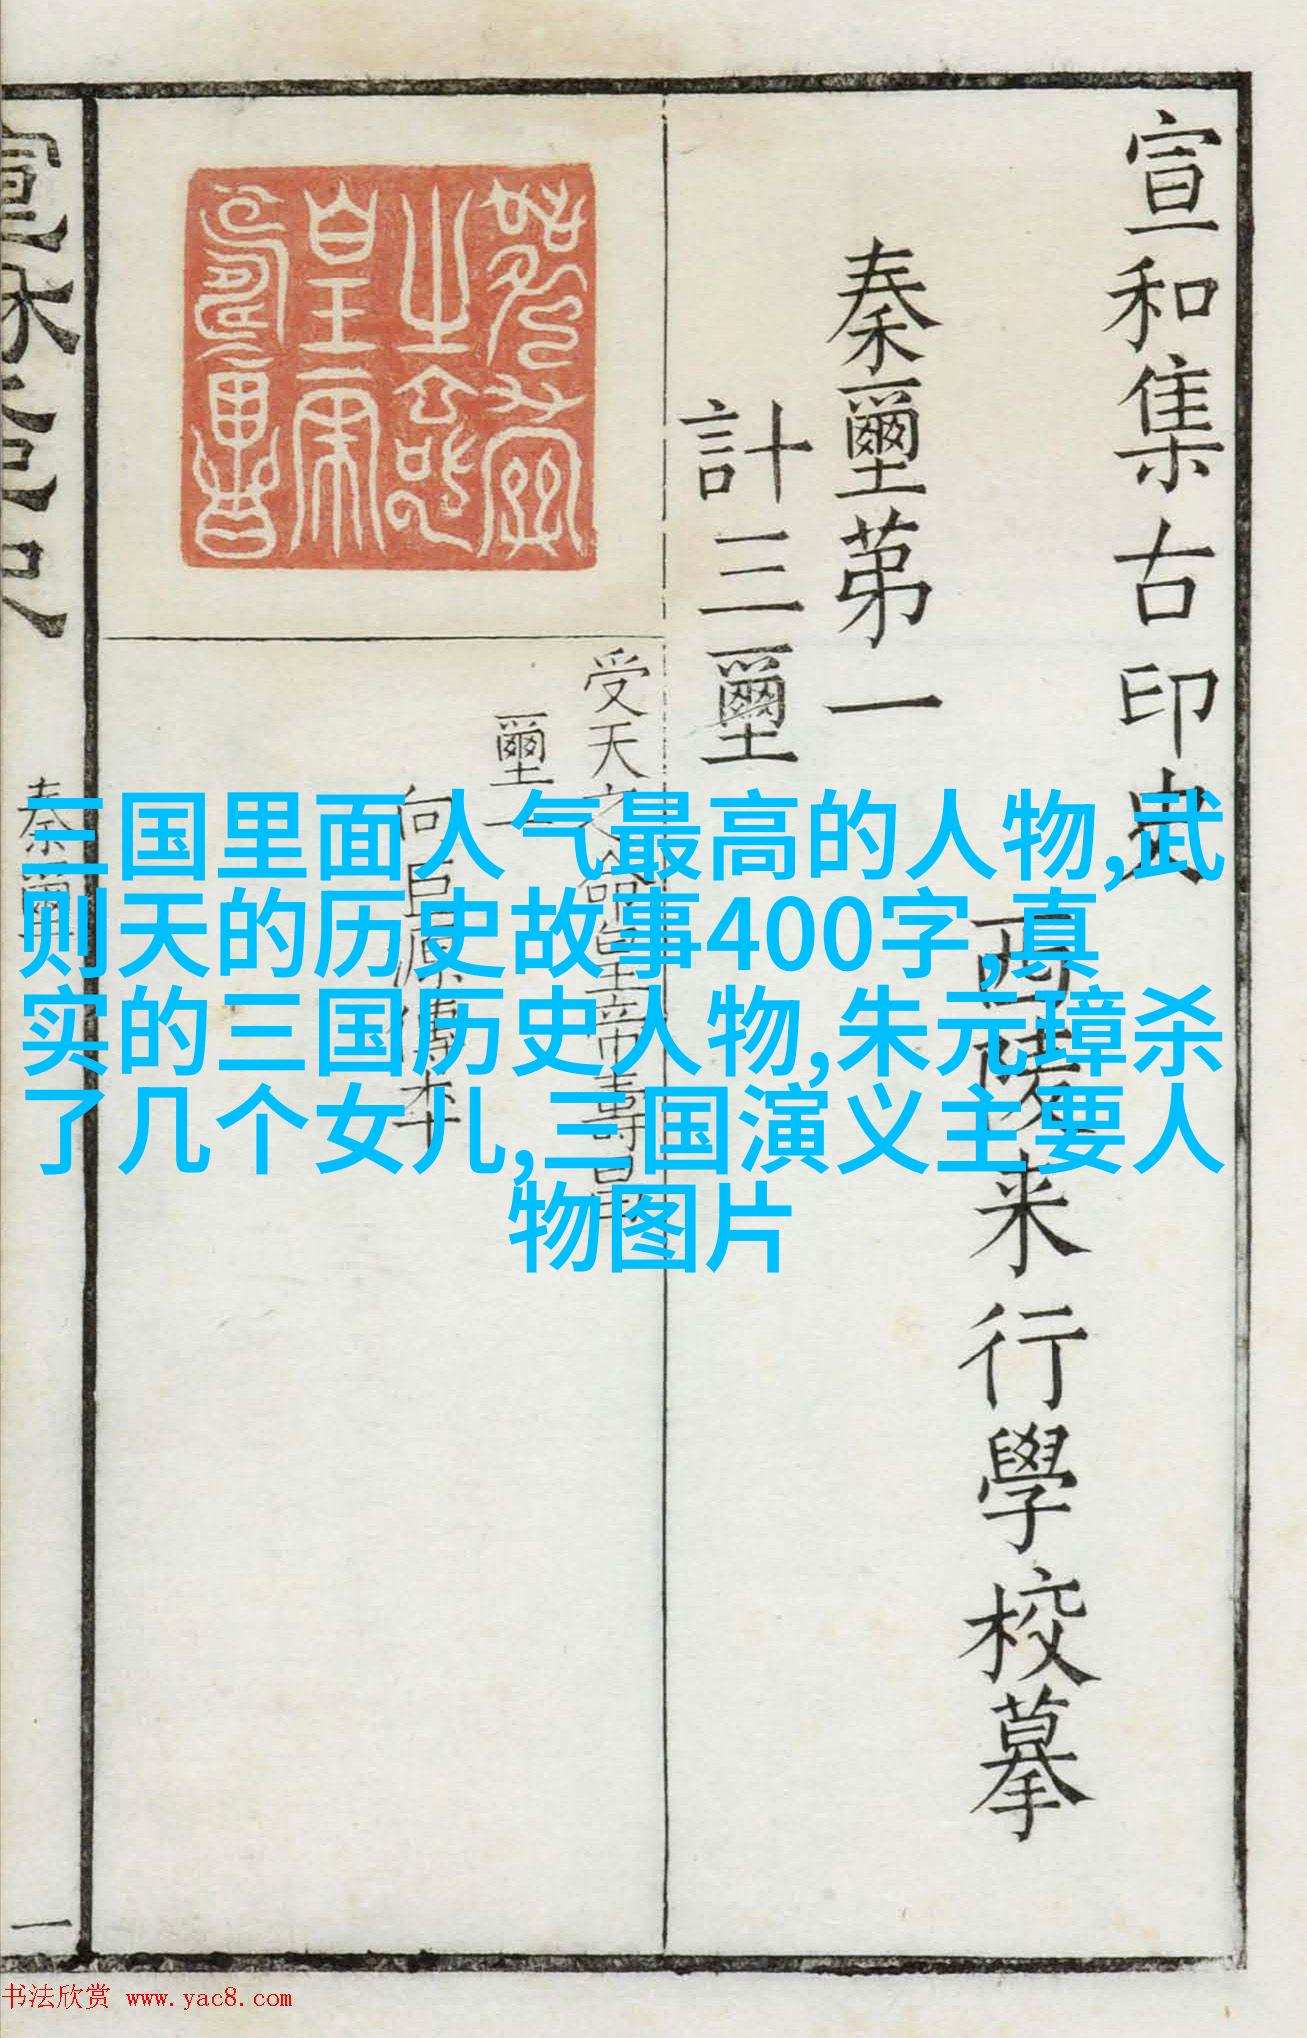 宣和集古印史
西陵来行學校摹
秦璽苐一
計三璽
受天之命皇帝壽昌
璽一
向巨源傳本
秦璽
一
三国里面人气最高的人物,武
则天的历史故事400字,真
实的三国历史人物,朱元璋杀
了几个女儿,三国演义主要人
物图片
书法欣赏 www.yac8.com